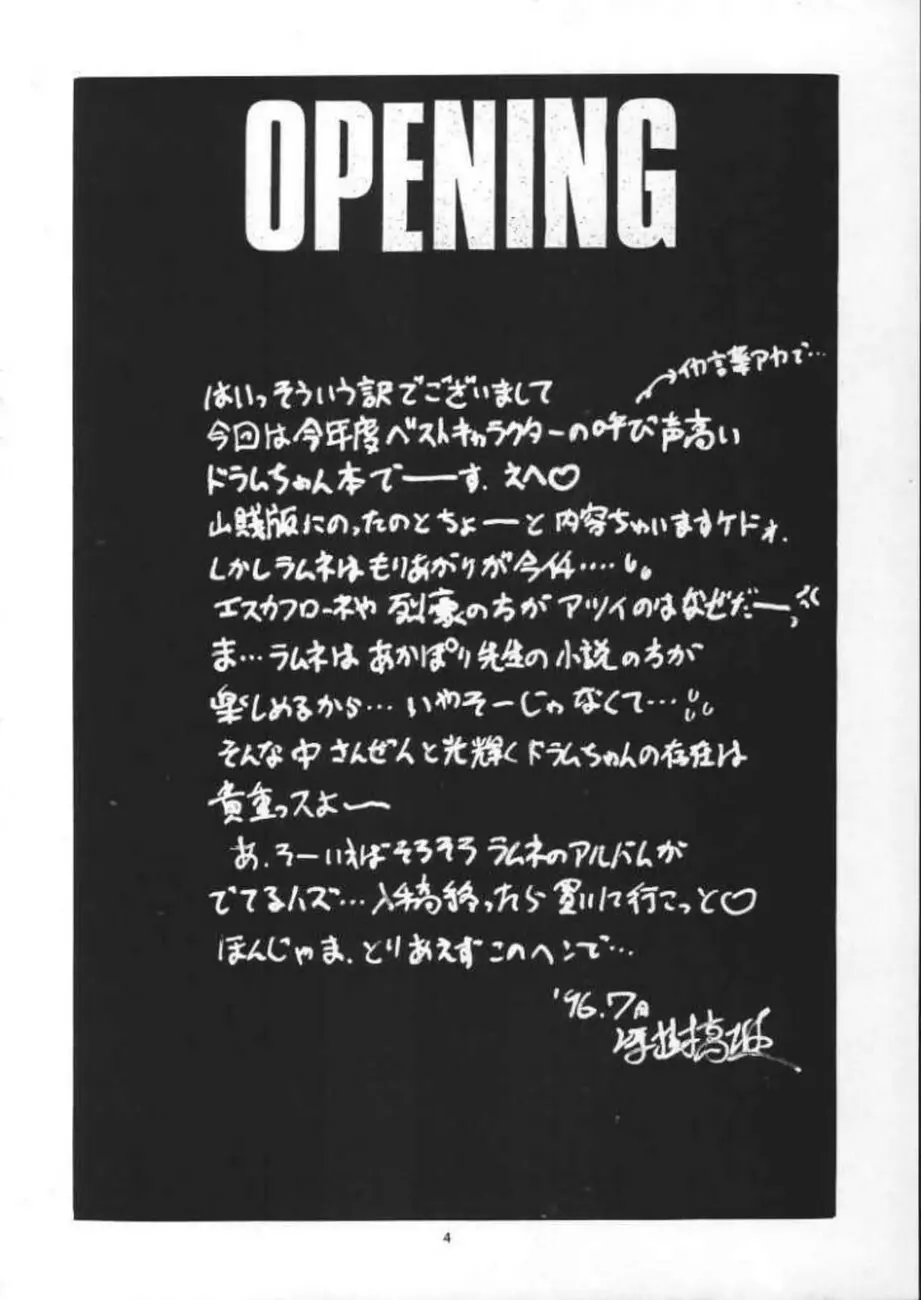 OPENING
イカ言葉アカで…
はいっそういう訳でございまして
今回は今年度ベストキャラクターの呼び声高い
ドラムちゃん本でーーす.えへ♡
山賎版にのったのとちょーーと内容ちゃいますケドォ.
しかしラムネはもりあがりが今仆‥‥
エスカフローネや烈豪の方がアツイのはなぜだー
ま…ラムネはあかほり先生の小説の方が
楽しめるから…いやそーじゃなくて…
そんな中さんぜんと光輝くドラムちゃんの存在は
貴重っスよー
あ.そーいえばそろそろラムネのアルバムが
でてるハズ…入稿終ったら買いに行こっと♡
ほんじゃま.とりあえずこのヘンで…
'96.7月
4